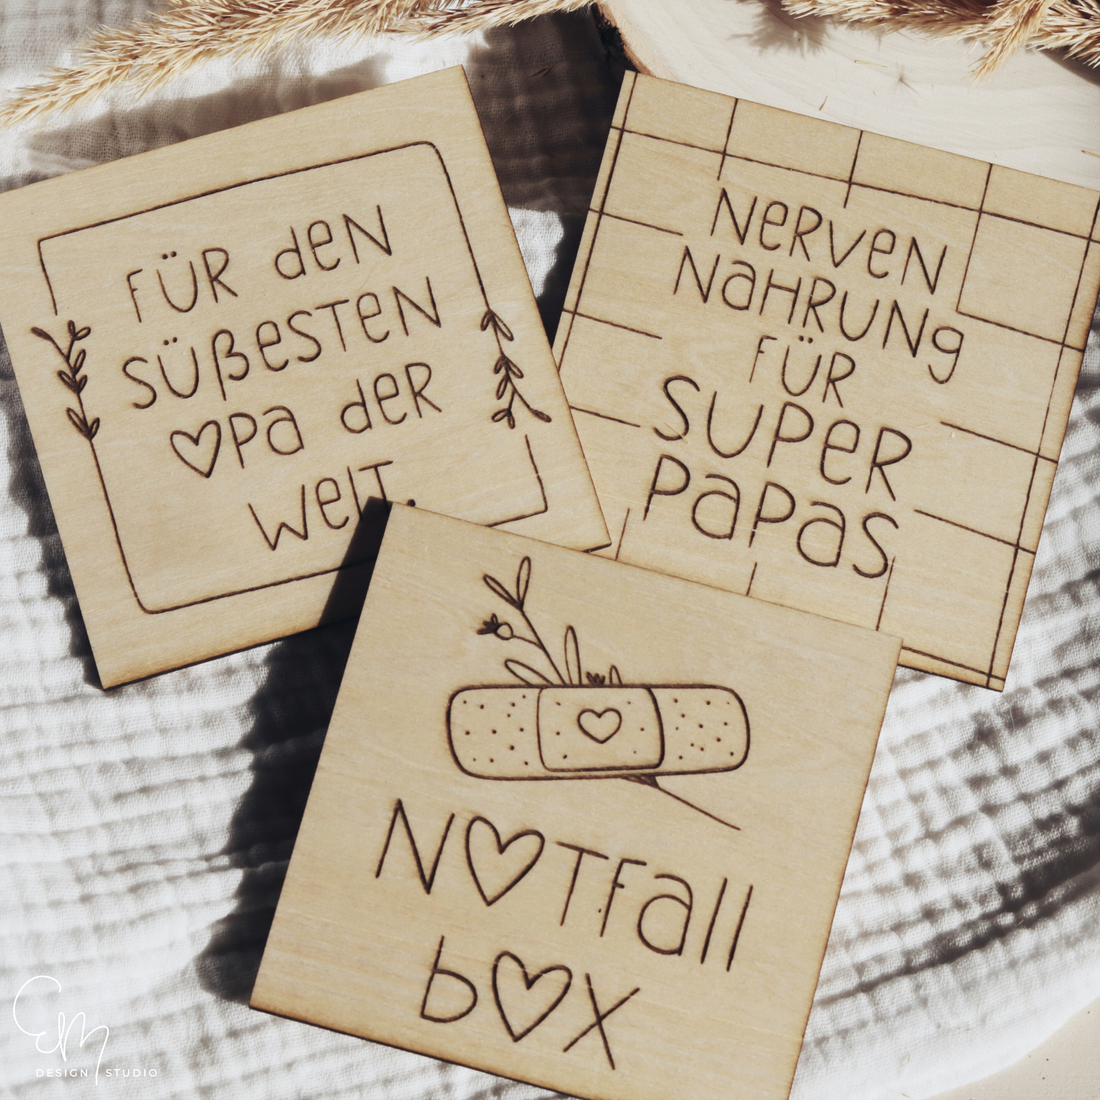 FÜR deN
SÜßeSTeN
♡Pa deR
WelT.
NeRVeN
NaHRUNg
FÜR
SUPeR
PaPas
N♡TFall
b♡X
EM
DESIGN STUDIO